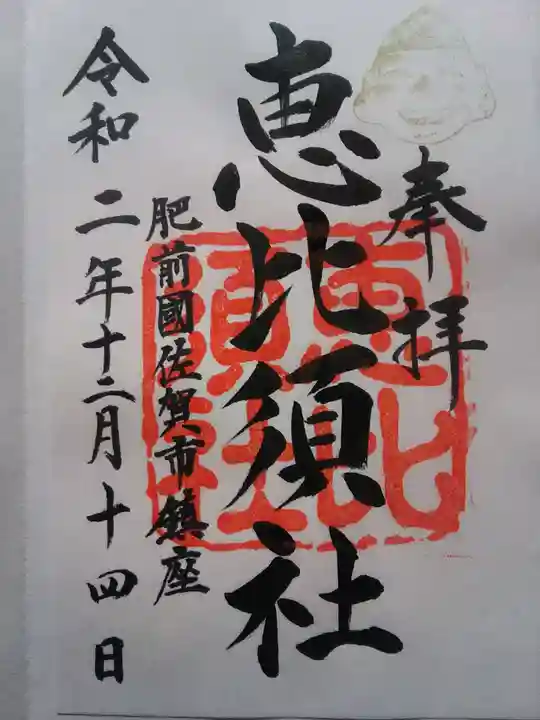 奉拝
恵比須社
肥前國佐賀市鎮座
令和二年十二月十四日
恵比
須社